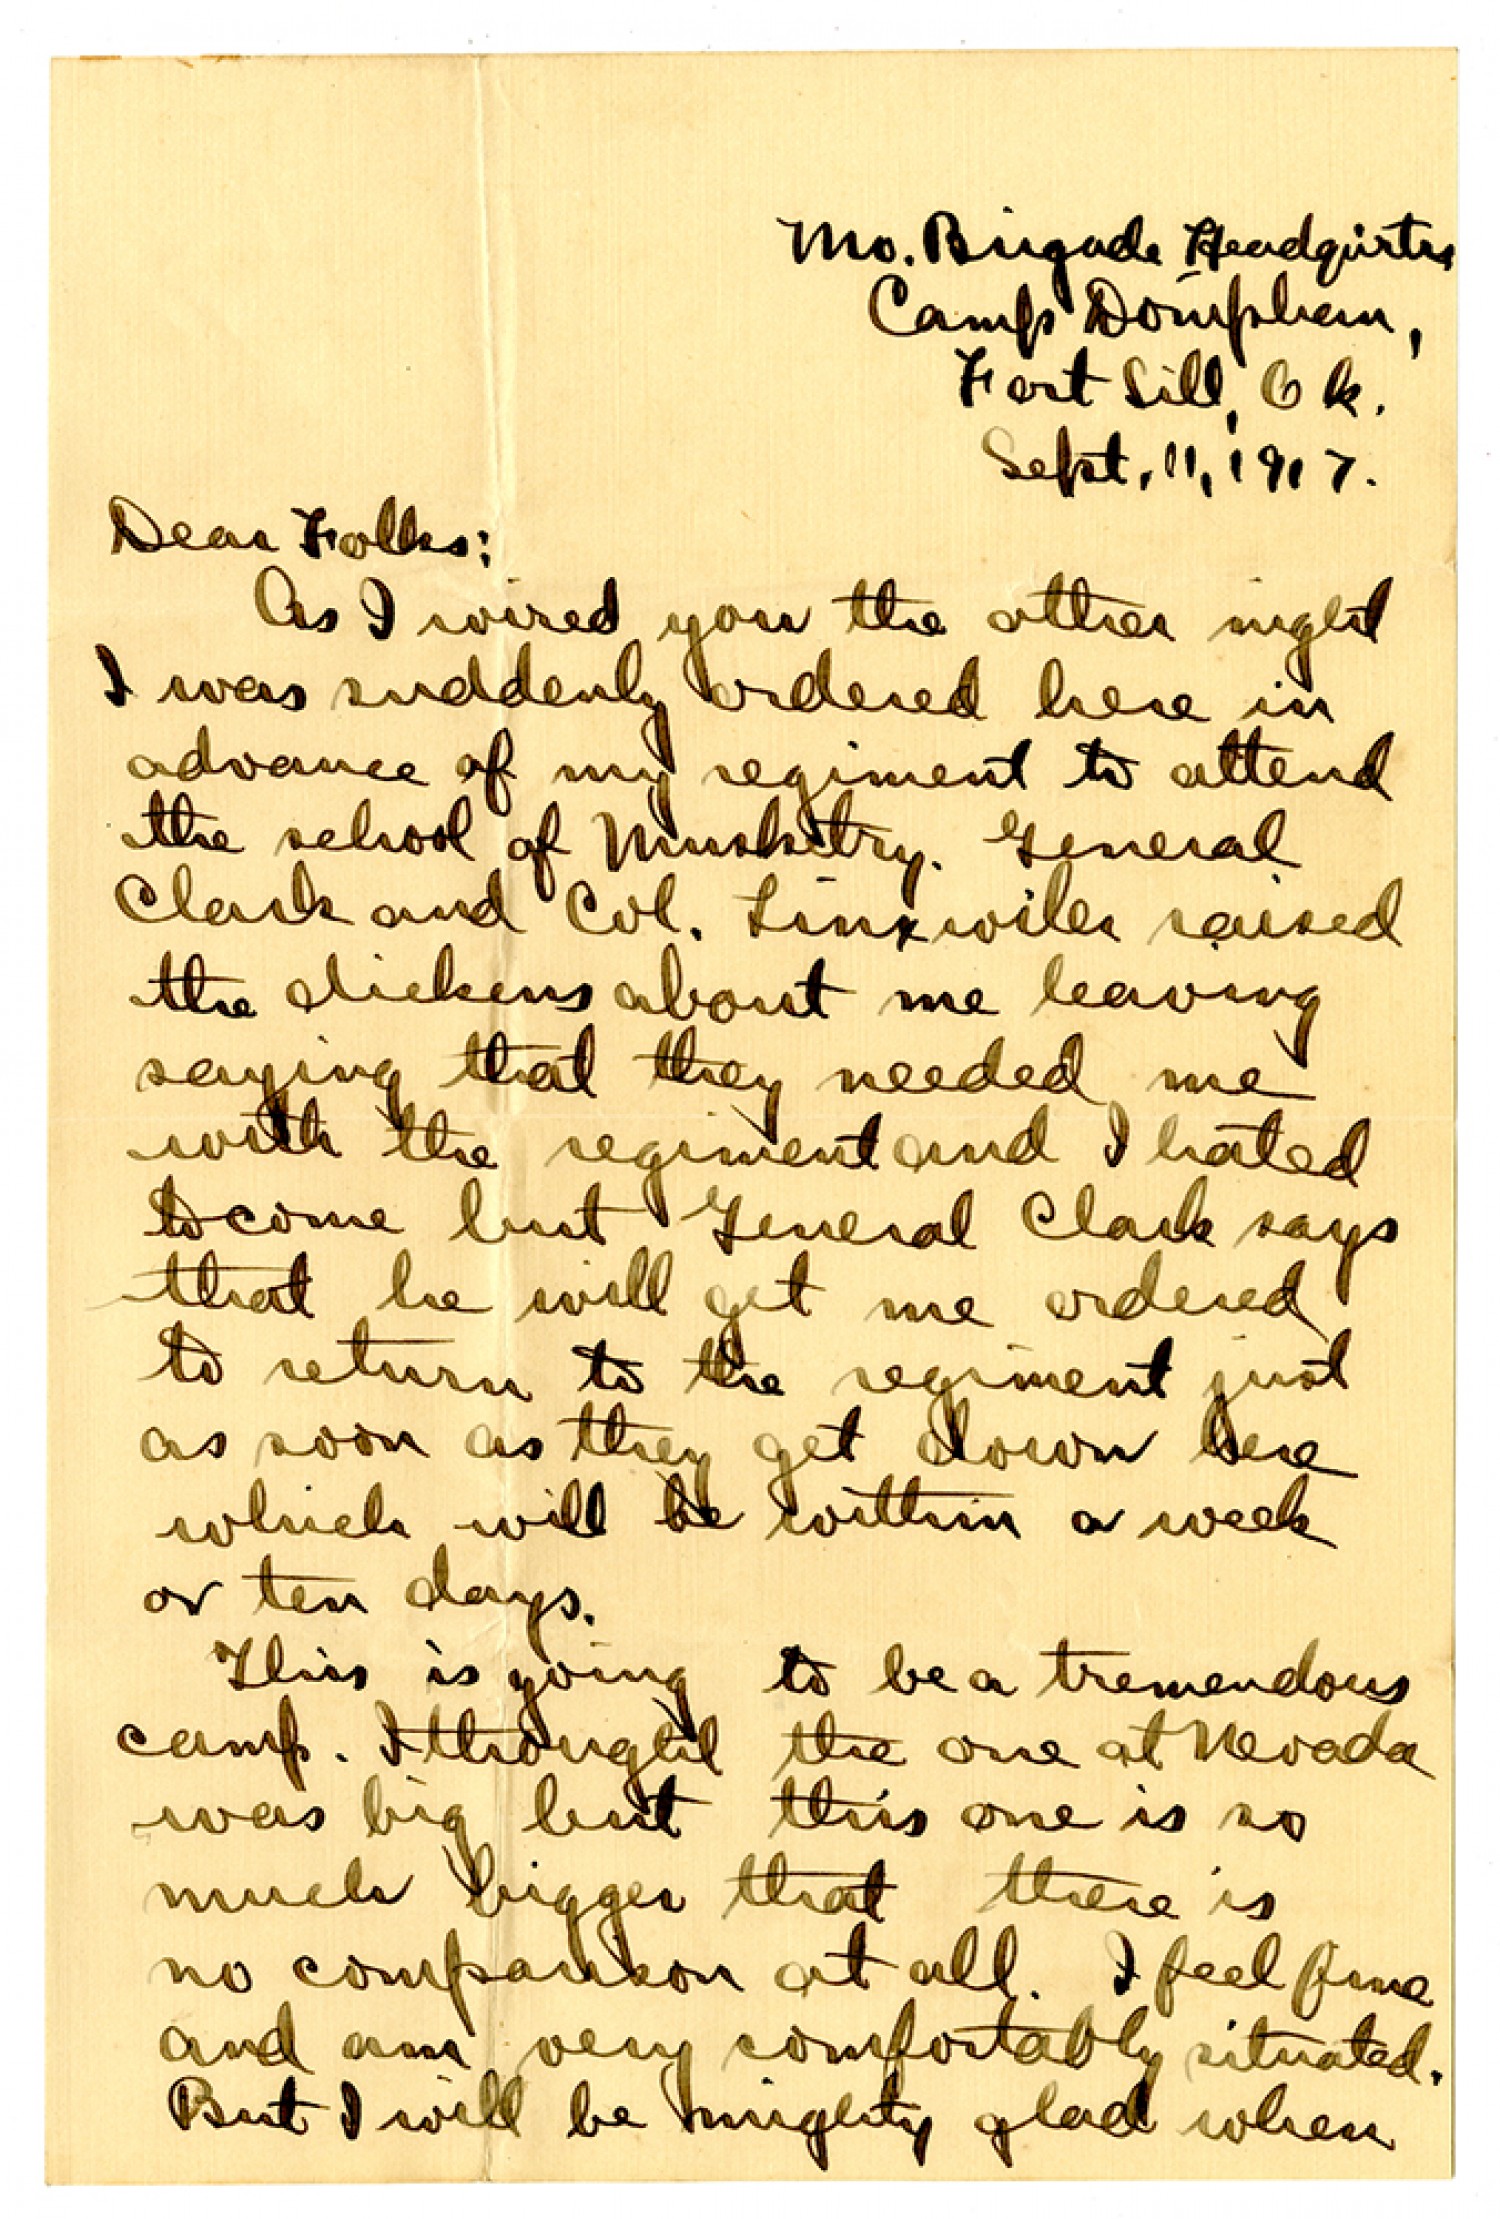 Mo. Brigade Headqurtrs
Camp Doniphan,
Fort Sill, Ok.
Sept. 11, 1917.
Dear Folks:
As I wired you the other night
I was suddenly ordered here in
advance of my regiment to attend
the school of Musketry. General
Clark and Col. Linxwiler raised
the dickens about me leaving
saying that they needed me
with the regiment and I hated
to come but General Clark says
that he will get me ordered
to return to the regiment just
as soon as they get down here
which will be within a week
or ten days.
This is going to be a tremendous
camp. I thought the one at Nevada
was big but this one is so
much bigger that there is
no comparison at all. I feel fine
and am very comfortably situated.
But I will be mighty glad when